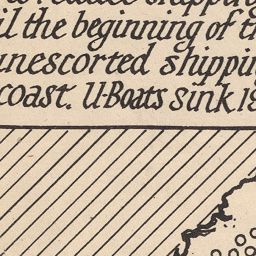 il the beginning of
unescorted shippin
coast. U-Boats sink 18